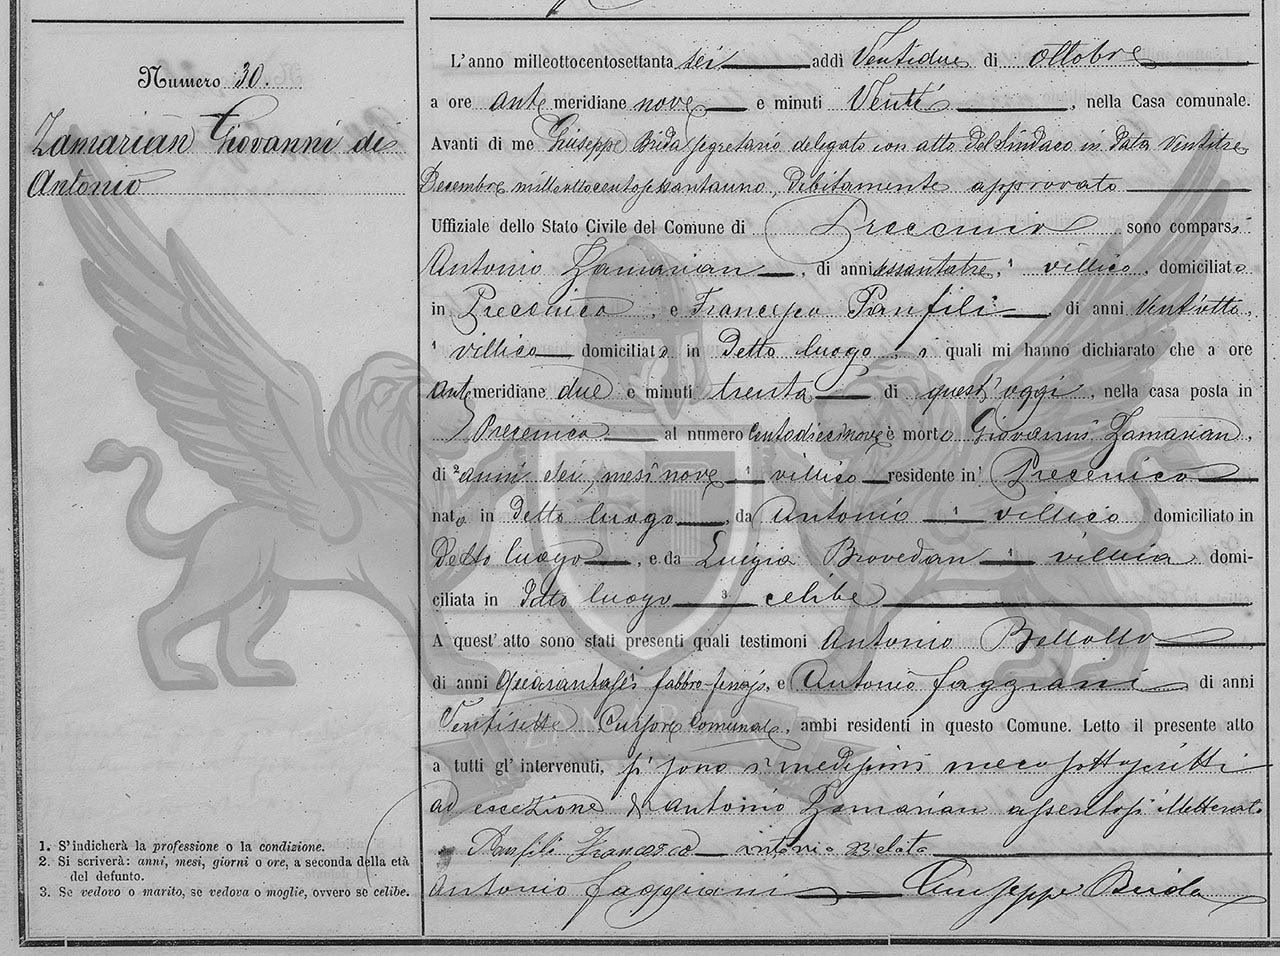 Numero 30.
Zamarian Giovanni di
Antonio
L'anno milleottocentosettanta sei addi Ventidue di ottobre
a ore ante meridiane nove e minuti Venti, nella Casa comunale.
Avanti di me Giuseppe Brida Segretario delegato con atto del Sindaco in data Ventitre
Decembre milleottocentosessantauno, debitamente approvato
Uffiziale dello Stato Civile del Comune di Precenico sono comparsi
Antonio Zamarian, di anni essantatre, villico, domiciliato
in Precenico, e Francesco Panfili, di anni Ventotto,
villico domiciliato in detto luogo i quali mi hanno dichiarato che a ore
antemeridiane due e minuti trenta di quest'oggi, nella casa posta in
Precenico al numero Centodiecinove è morto Giovanni Zamarian,
di anni sei, mesi nove villico residente in Precenico
nato in detto luogo, da Antonio villico domiciliato in
detto luogo, e da Luigia Brovedan villica domi-
ciliata in detto luogo celibe
A quest'atto sono stati presenti quali testimoni Antonio
di anni quarantasei fabbro-ferrajo, e Antonio Faggiani di anni
Ventisette Cursore Comunale, ambi residenti in questo Comune. Letto il presente atto
a tutti gl'intervenuti, si sono i medesimi meco sottoscritti
ad eccezione di Antonio Zamarian assertosi illetterato
Panfili Francesco Antonio
Antonio Faggiani Giuseppe Brida
1. S'indicherà la professione o la condizione.
2. Si scriverà: anni, mesi, giorni o ore, a seconda della età
del defunto.
3. Se vedovo o marito, se vedova o moglie, ovvero se celibe.